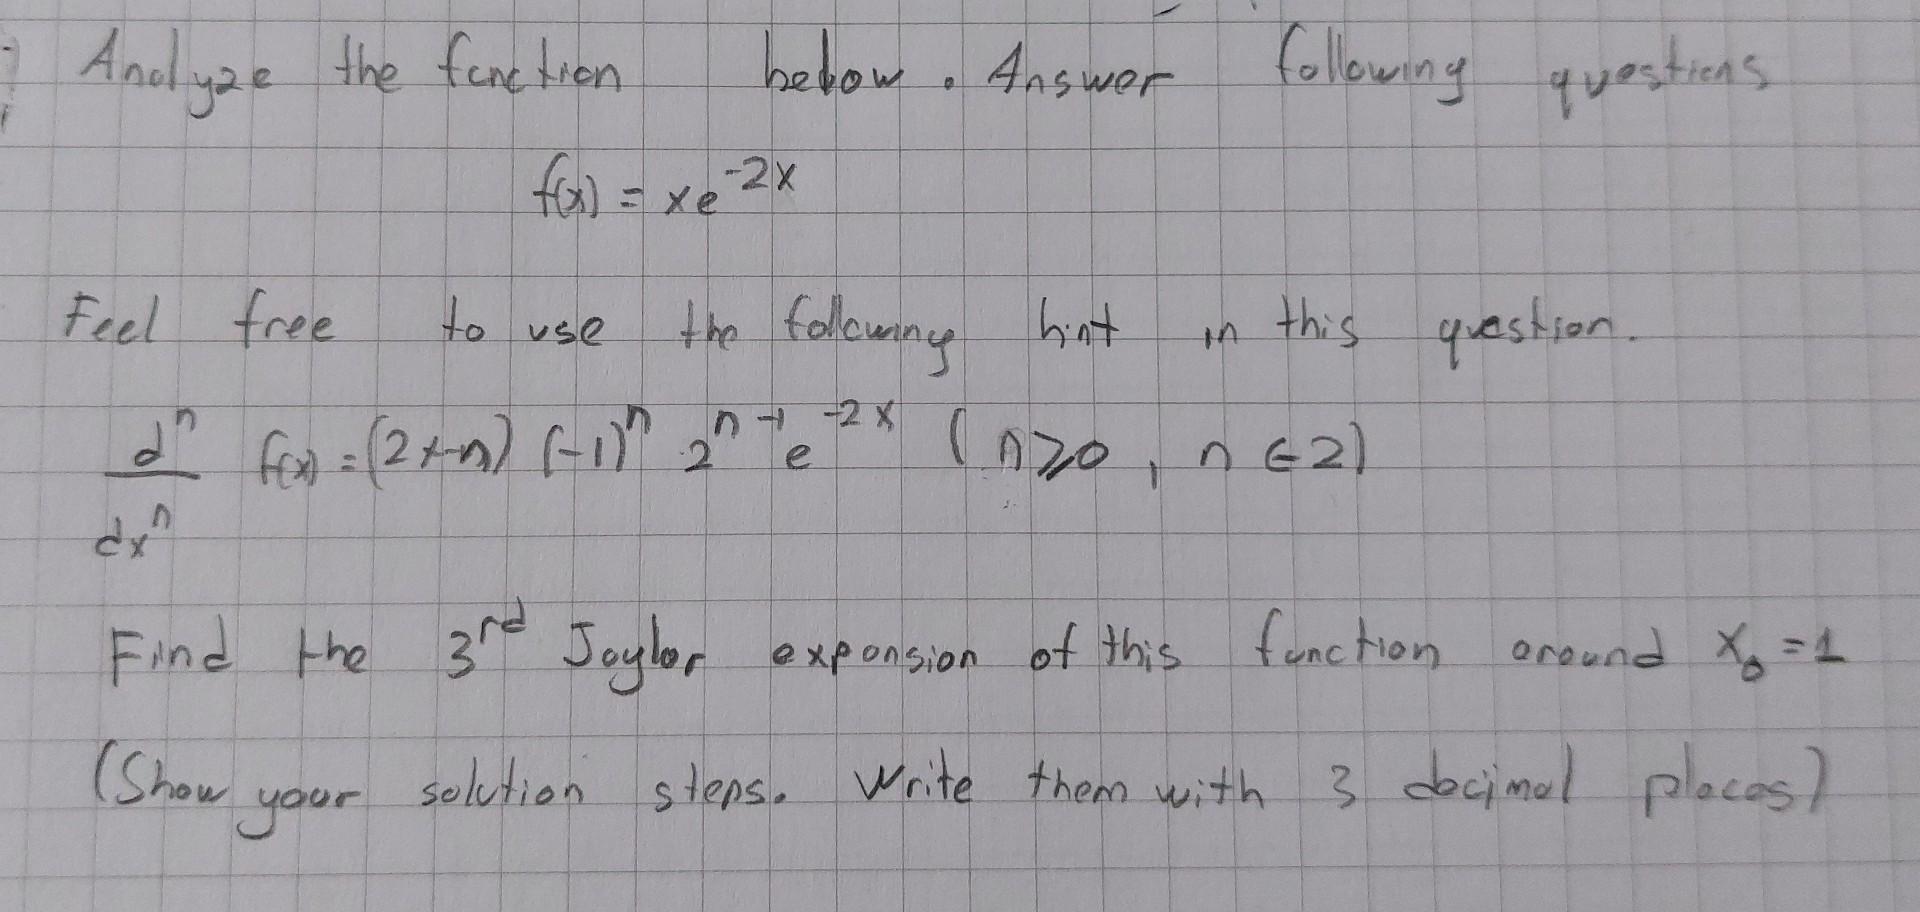 Analyze the function below. Answer following questions
f(x) = xe^-2x
Feel free to use the following hint in this question.
d^n/dx^n f(x) = (2x-n) (-1)^n 2^n-1 e^-2x (n≥0, n∈Z)
Find the 3rd Taylor expansion of this function around x₀=1
(Show your solution steps. Write them with 3 decimal places)